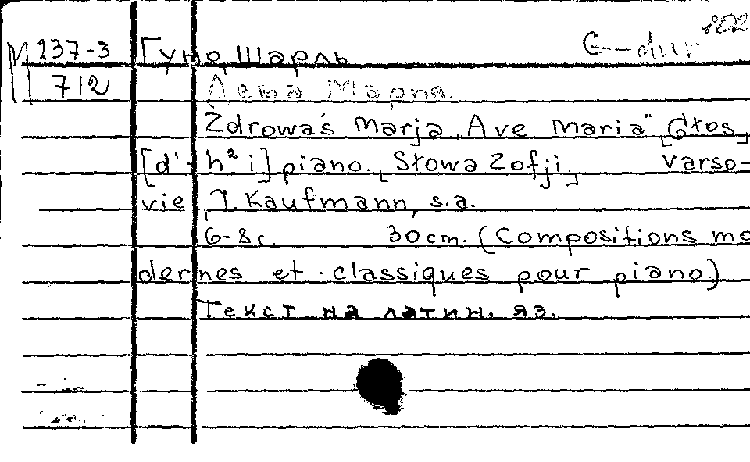 802
G-dur
М 237-3 Гуно, Шарль
712 Аве Мария.
Zdrowaś Marja „Ave Maria" [Głos]
[d'-h² i] piano. [Słowa Zofji] Varso-
vie, J. Kaufmann, s.a.
6-8 с. 30 cm. (Compositions mo
dernes et classiques pour piano)
Текст на латин. яз.